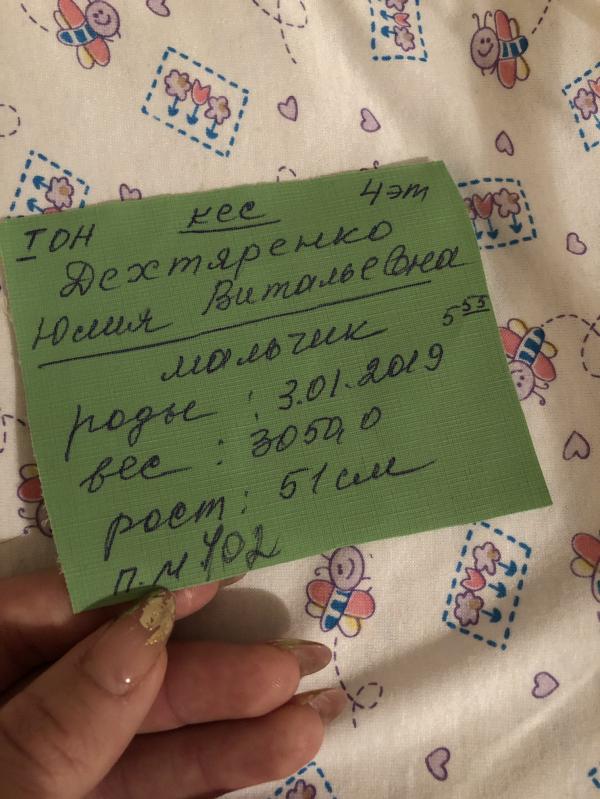 I ОН кес 4 эт
Дехтяренко
Юлия Витальевна
мальчик 5 55
роды : 3.01.2019
вес : 3050,0
рост : 51 см
п.м 402